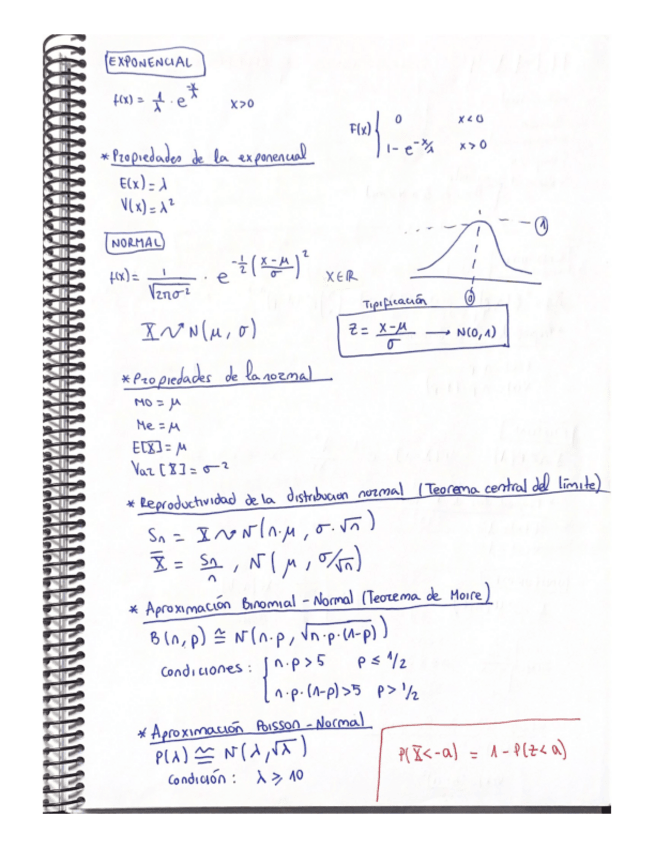 EXPONENCIAL
f(x) = 1/λ · e^(x/λ)   x>0
F(x) { 0   x<0
1 - e^(-x/λ)   x>0
* Propiedades de la exponencial
E(x) = λ
V(x) = λ²
NORMAL
f(x) = 1/√(2πσ²) · e^(-1/2 ((x-μ)/σ)²)   x∈ℝ
1
0
Tipificación
Z = (x-μ)/σ → N(0,1)
X ~ N(μ, σ)
* Propiedades de la normal
Mo = μ
Me = μ
E[X] = μ
Var[X] = σ²
* Reproductividad de la distribucion normal (Teorema central del límite)
Sn = X ~ N(n·μ, σ·√n)
X̄ = Sn/n, N(μ, σ/√n)
* Aproximación Binomial - Normal (Teorema de Moire)
B(n,p) ≅ N(n·p, √(n·p·(1-p)))
Condiciones: { n·p>5   p ≤ 1/2
n·p·(1-p)>5   p>1/2
* Aproximación Poisson - Normal
P(λ) ≅ N(λ, √λ)
Condición: λ ≥ 10
P(X<-a) = 1 - P(Z<a)